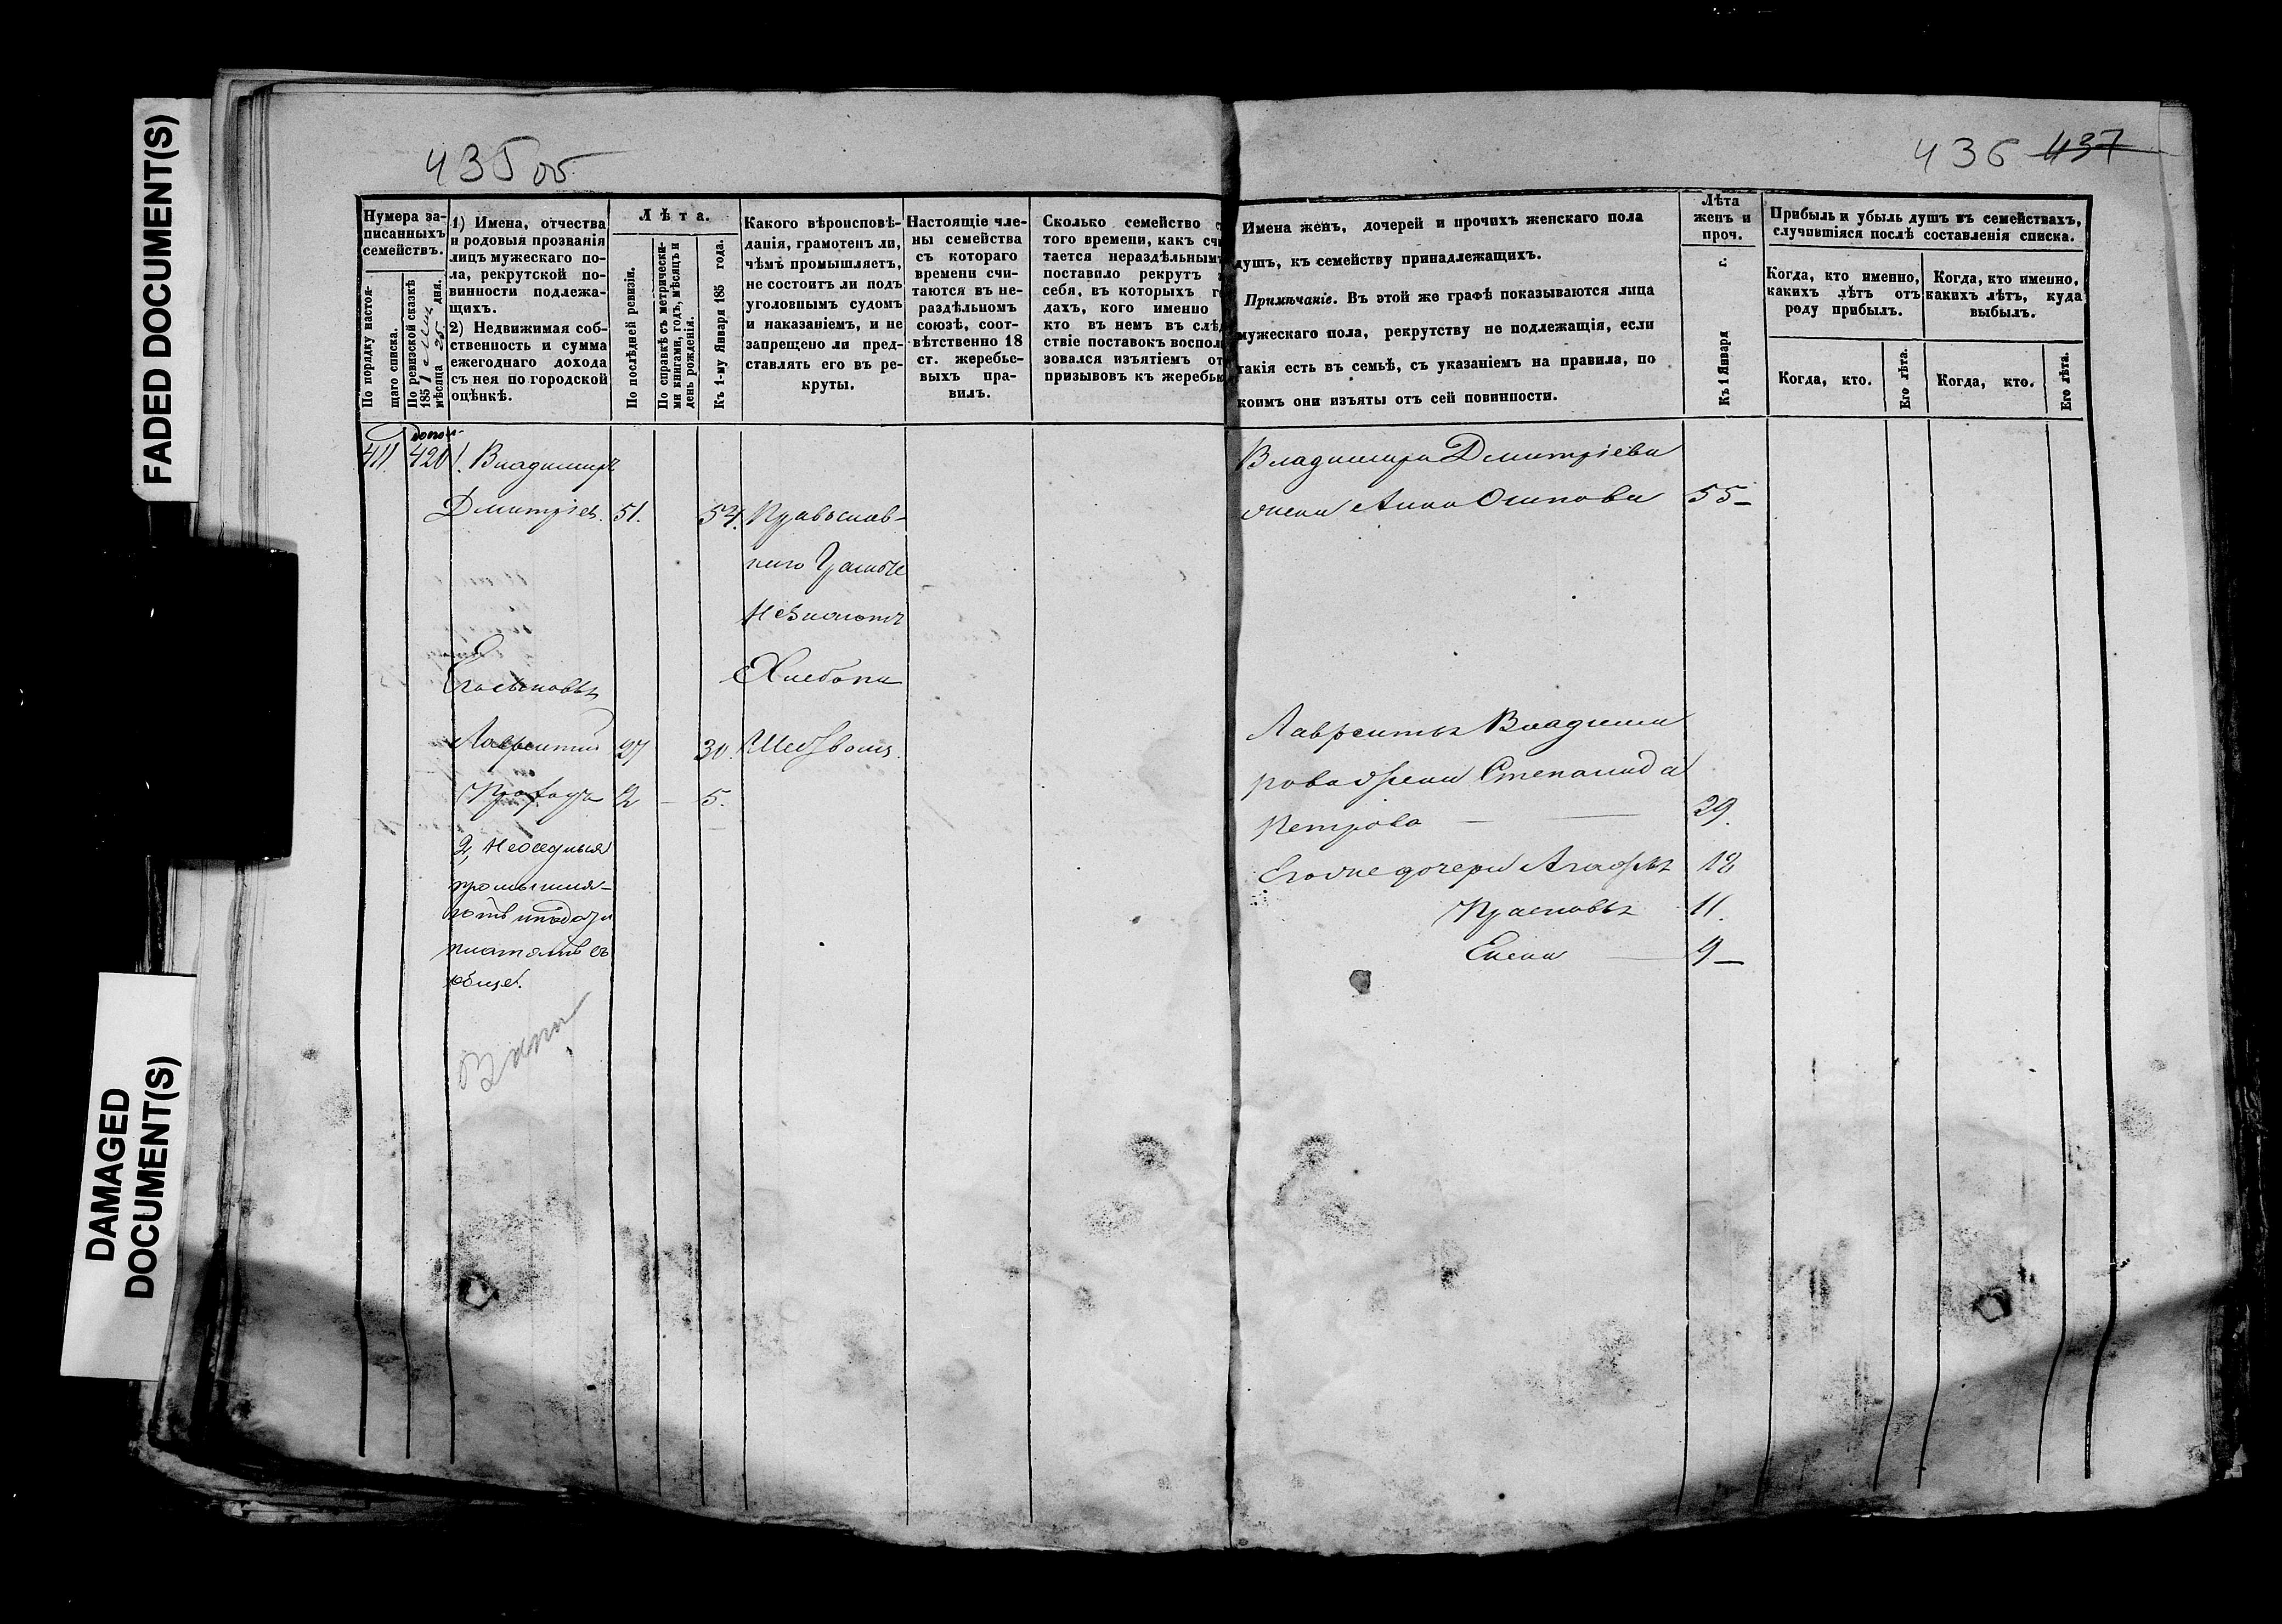 FADED DOCUMENT(S)
DAMAGED
DOCUMENT(S)
435 об
Нумера за-
писанныхъ
семействъ.
По порядку настоя-
щаго списка.
По ревизской сказкѣ
185
мѣсяца дня.
1) Имена, отчества
и родовыя прозванія
лицъ мужескаго по-
ла, рекрутской по-
винности подлежа-
щихъ.
2) Недвижимая соб-
ственность и сумма
ежегоднаго дохода
съ нея по городской
оцѣнкѣ.
Лѣта.
По послѣдней ревизіи.
По справкѣ съ метрически-
ми книгами, годъ, мѣсяцъ и
день рожденія.
Къ 1-му Января 185 года.
Какого вѣроисповѣ-
данія, грамотенъ ли,
чѣмъ промышляетъ,
не состоитъ ли подъ
уголовнымъ судомъ
и наказаніемъ, и не
запрещено ли пред-
ставлять его въ ре-
круты.
Настоящіе чле-
ны семейства
съ котораго
времени счи-
таются въ не-
раздѣльномъ
союзѣ, соот-
вѣтственно 18
ст. жеребье-
выхъ пра-
вилъ.
Сколько семейство с
того времени, какъ сч
тается нераздѣльнымъ
поставило рекрутъ
себя, въ которыхъ г
дахъ, кого именно
кто въ немъ въ слѣд
ствіе поставокъ воспол
зовался изъятіемъ от
призывовъ къ жеребь
411 420 1. Владимиръ
Дмитріев. 51. 54. Православ-
Еголсыновья
Лаврентий 27 30.
2 5.
436 437
Имена женъ, дочерей и прочихъ женскаго пола
душъ, къ семейству принадлежащихъ.
Примѣчаніе. Въ этой же графѣ показываются лица
мужескаго пола, рекрутству не подлежащія, если
такія есть въ семьѣ, съ указаніемъ на правила, по
коимъ они изъяты отъ сей повинности.
Лѣта
женъ и
проч.
Къ 1 Января г.
Прибыль и убыль душъ въ семействахъ,
случившіяся послѣ составленія списка.
Когда, кто именно,
какихъ лѣтъ отъ
роду прибылъ.
Когда, кто именно,
какихъ лѣтъ, куда
выбылъ.
Когда, кто.
Его лѣта.
Когда, кто.
Его лѣта.
Владимира Дмитріева
жена Анна Осипова 55
Лаврентья Владими
рова жена Степанида
Петрова 29.
Егоже дочери 12
11.
Елена 9